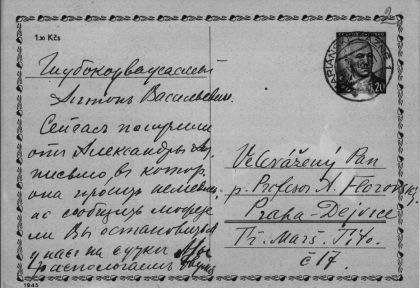 1.20 Kčs
2
Глубокоуважаемый
Антонъ Васильевич.
Сейчас получили
отъ Александры
письмо, в котор.
она просит немедл.
но сообщить
ли Вы остановиться
у нас на сутки Мы
располагаем
Velevážený Pan
p. Profesor A. Florovský
Praha-Dejvice
Tř. Marš. Tito.
č 17.
1945